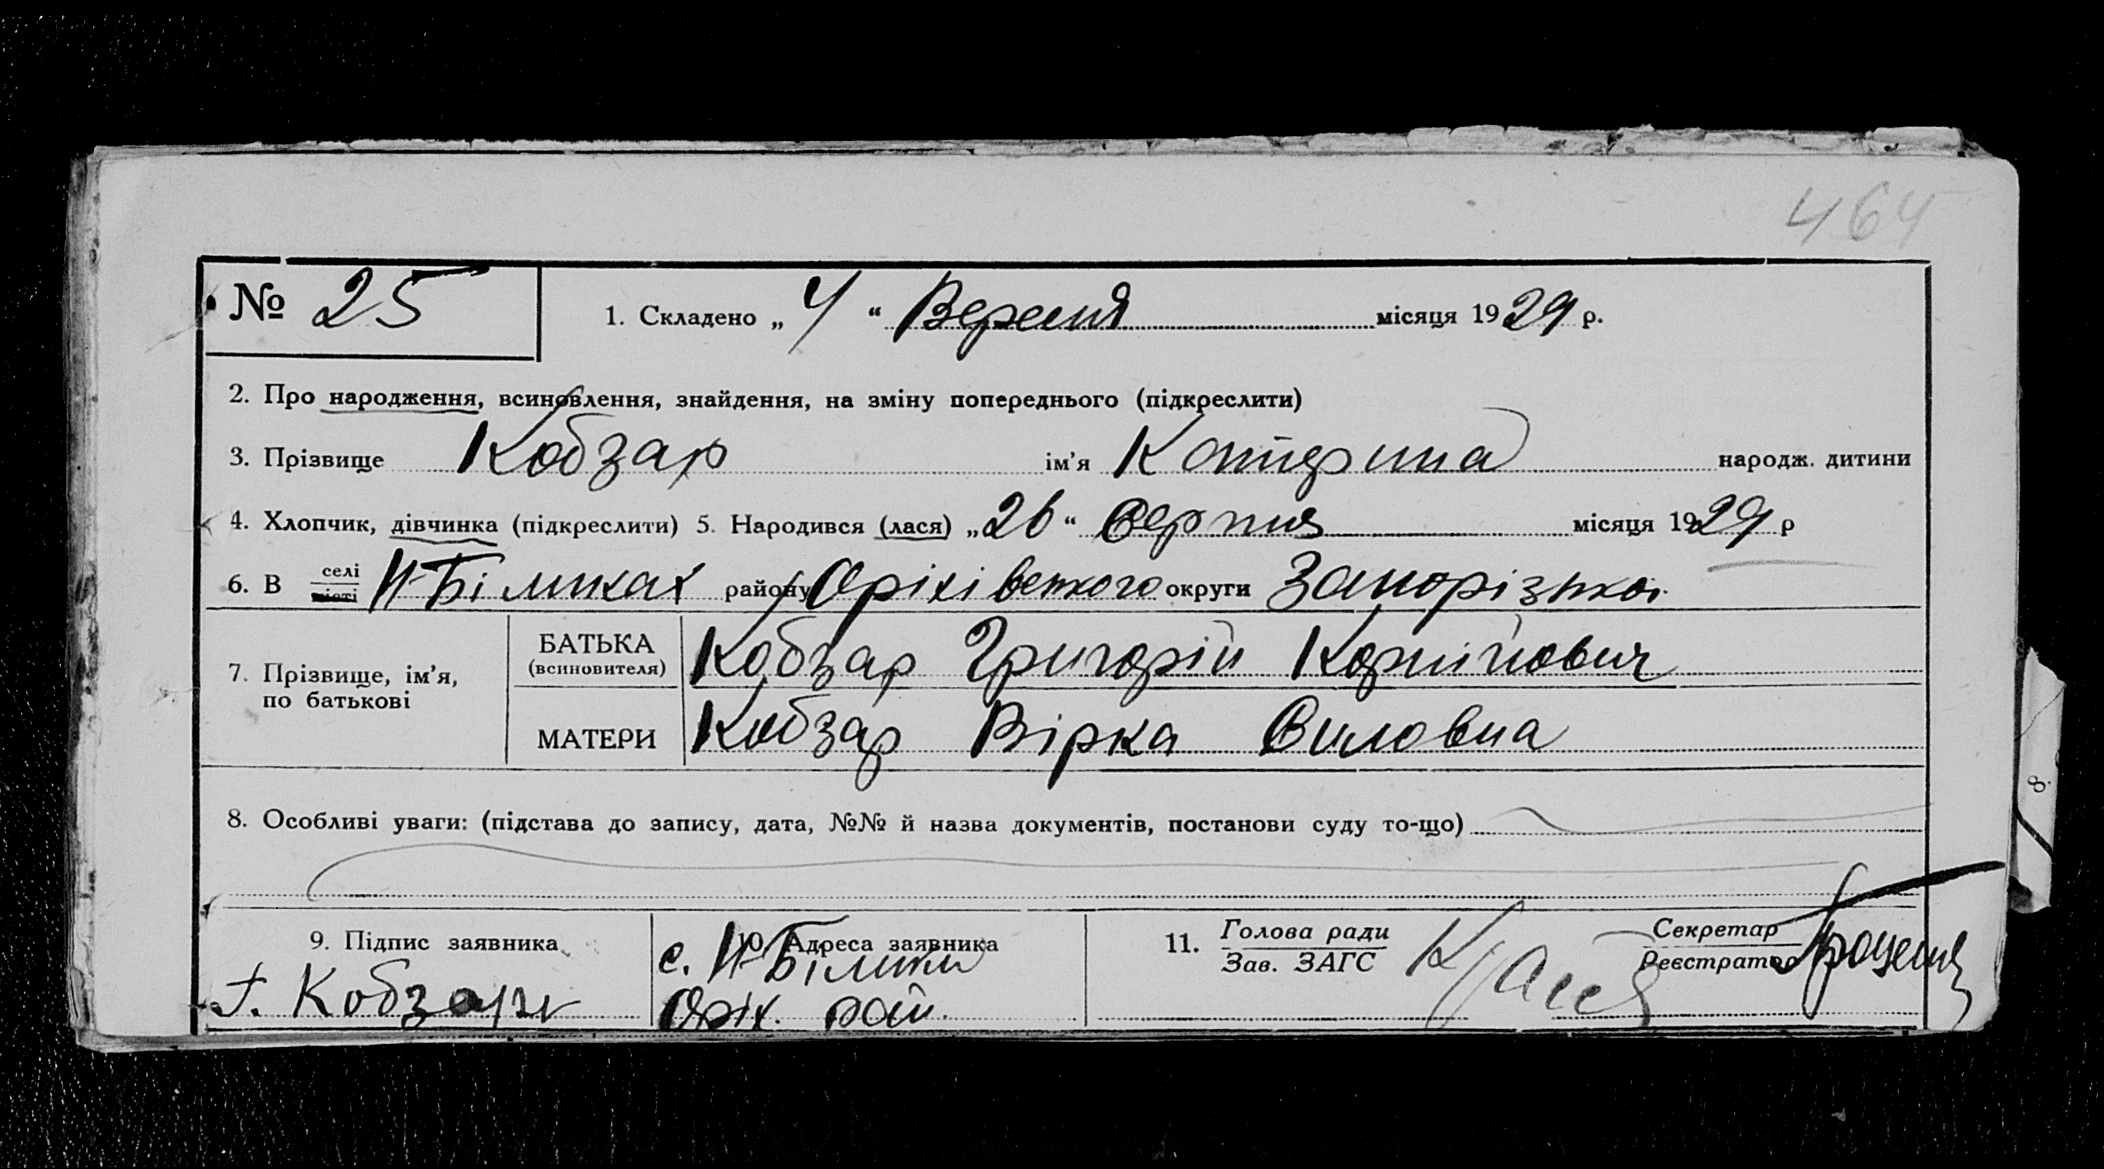 464
№ 25
1. Складено „ 4 “ Вересня місяця 1929 р.
2. Про народження, всиновлення, знайдення, на зміну попереднього (підкреслити)
3. Прізвище Кобзар ім’я Катерина народж. дитини
4. Хлопчик, дівчинка (підкреслити) 5. Народився (лася) „26“ Серпня місяця 1929 р
6. В селі місті Н-Біликах району Оріхівського округи Запорізької
7. Прізвище, ім’я, по батькові
БАТЬКА (всиновителя) Кобзар Григорій Корнійович
МАТЕРИ Кобзар Вірка Силовна
8. Особливі уваги: (підстава до запису, дата, №№ й назва документів, постанови суду то-що)
9. Підпис заявника
Г. Кобзарь
10. Адреса заявника
с. Н-Білики
Оріх. рай.
11. Голова ради
Зав. ЗАГС
Секретар
Реєстратор
8.